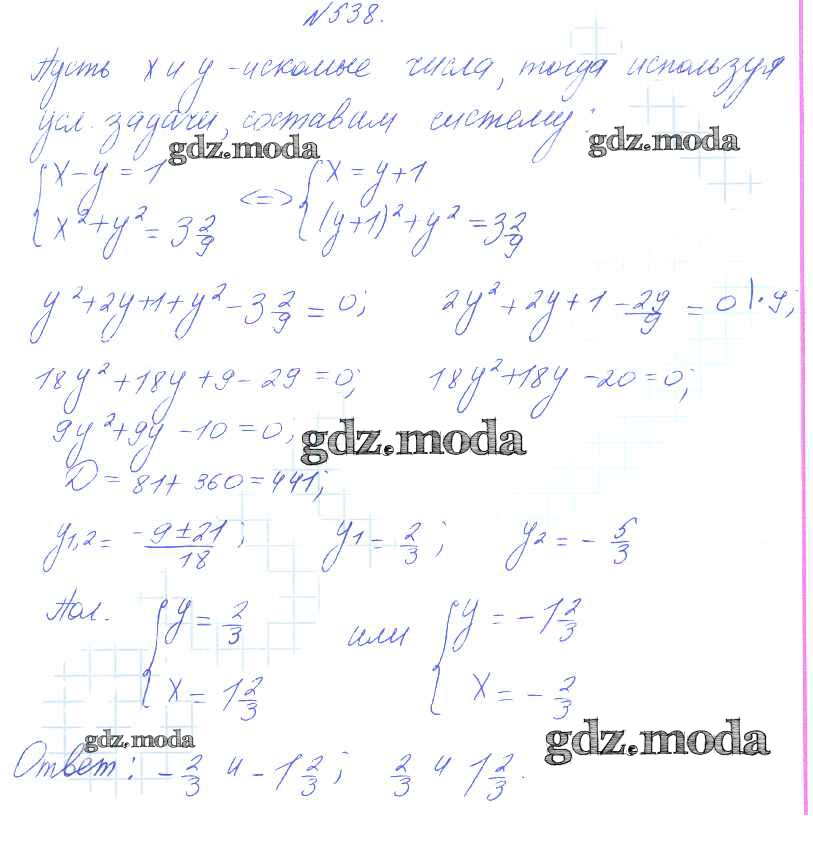 №538.
Пусть x и y - искомые числа, тогда используя
усл. задачи, составим систему:
gdz.moda gdz.moda
{ x - y = 1 <=> { x = y + 1
x² + y² = 3 2/9 (y+1)² + y² = 3 2/9
y² + 2y + 1 + y² - 3 2/9 = 0; 2y² + 2y + 1 - 29/9 = 0 |·9;
18y² + 18y + 9 - 29 = 0; 18y² + 18y - 20 = 0;
9y² + 9y - 10 = 0; gdz.moda
D = 81 + 360 = 441;
y1,2 = (-9 ± 21)/18; y1 = 2/3; y2 = - 5/3
Пол. { y = 2/3 или { y = -1 2/3
x = 1 2/3 x = - 2/3
gdz.moda gdz.moda
Ответ: - 2/3 и -1 2/3; 2/3 и 1 2/3.